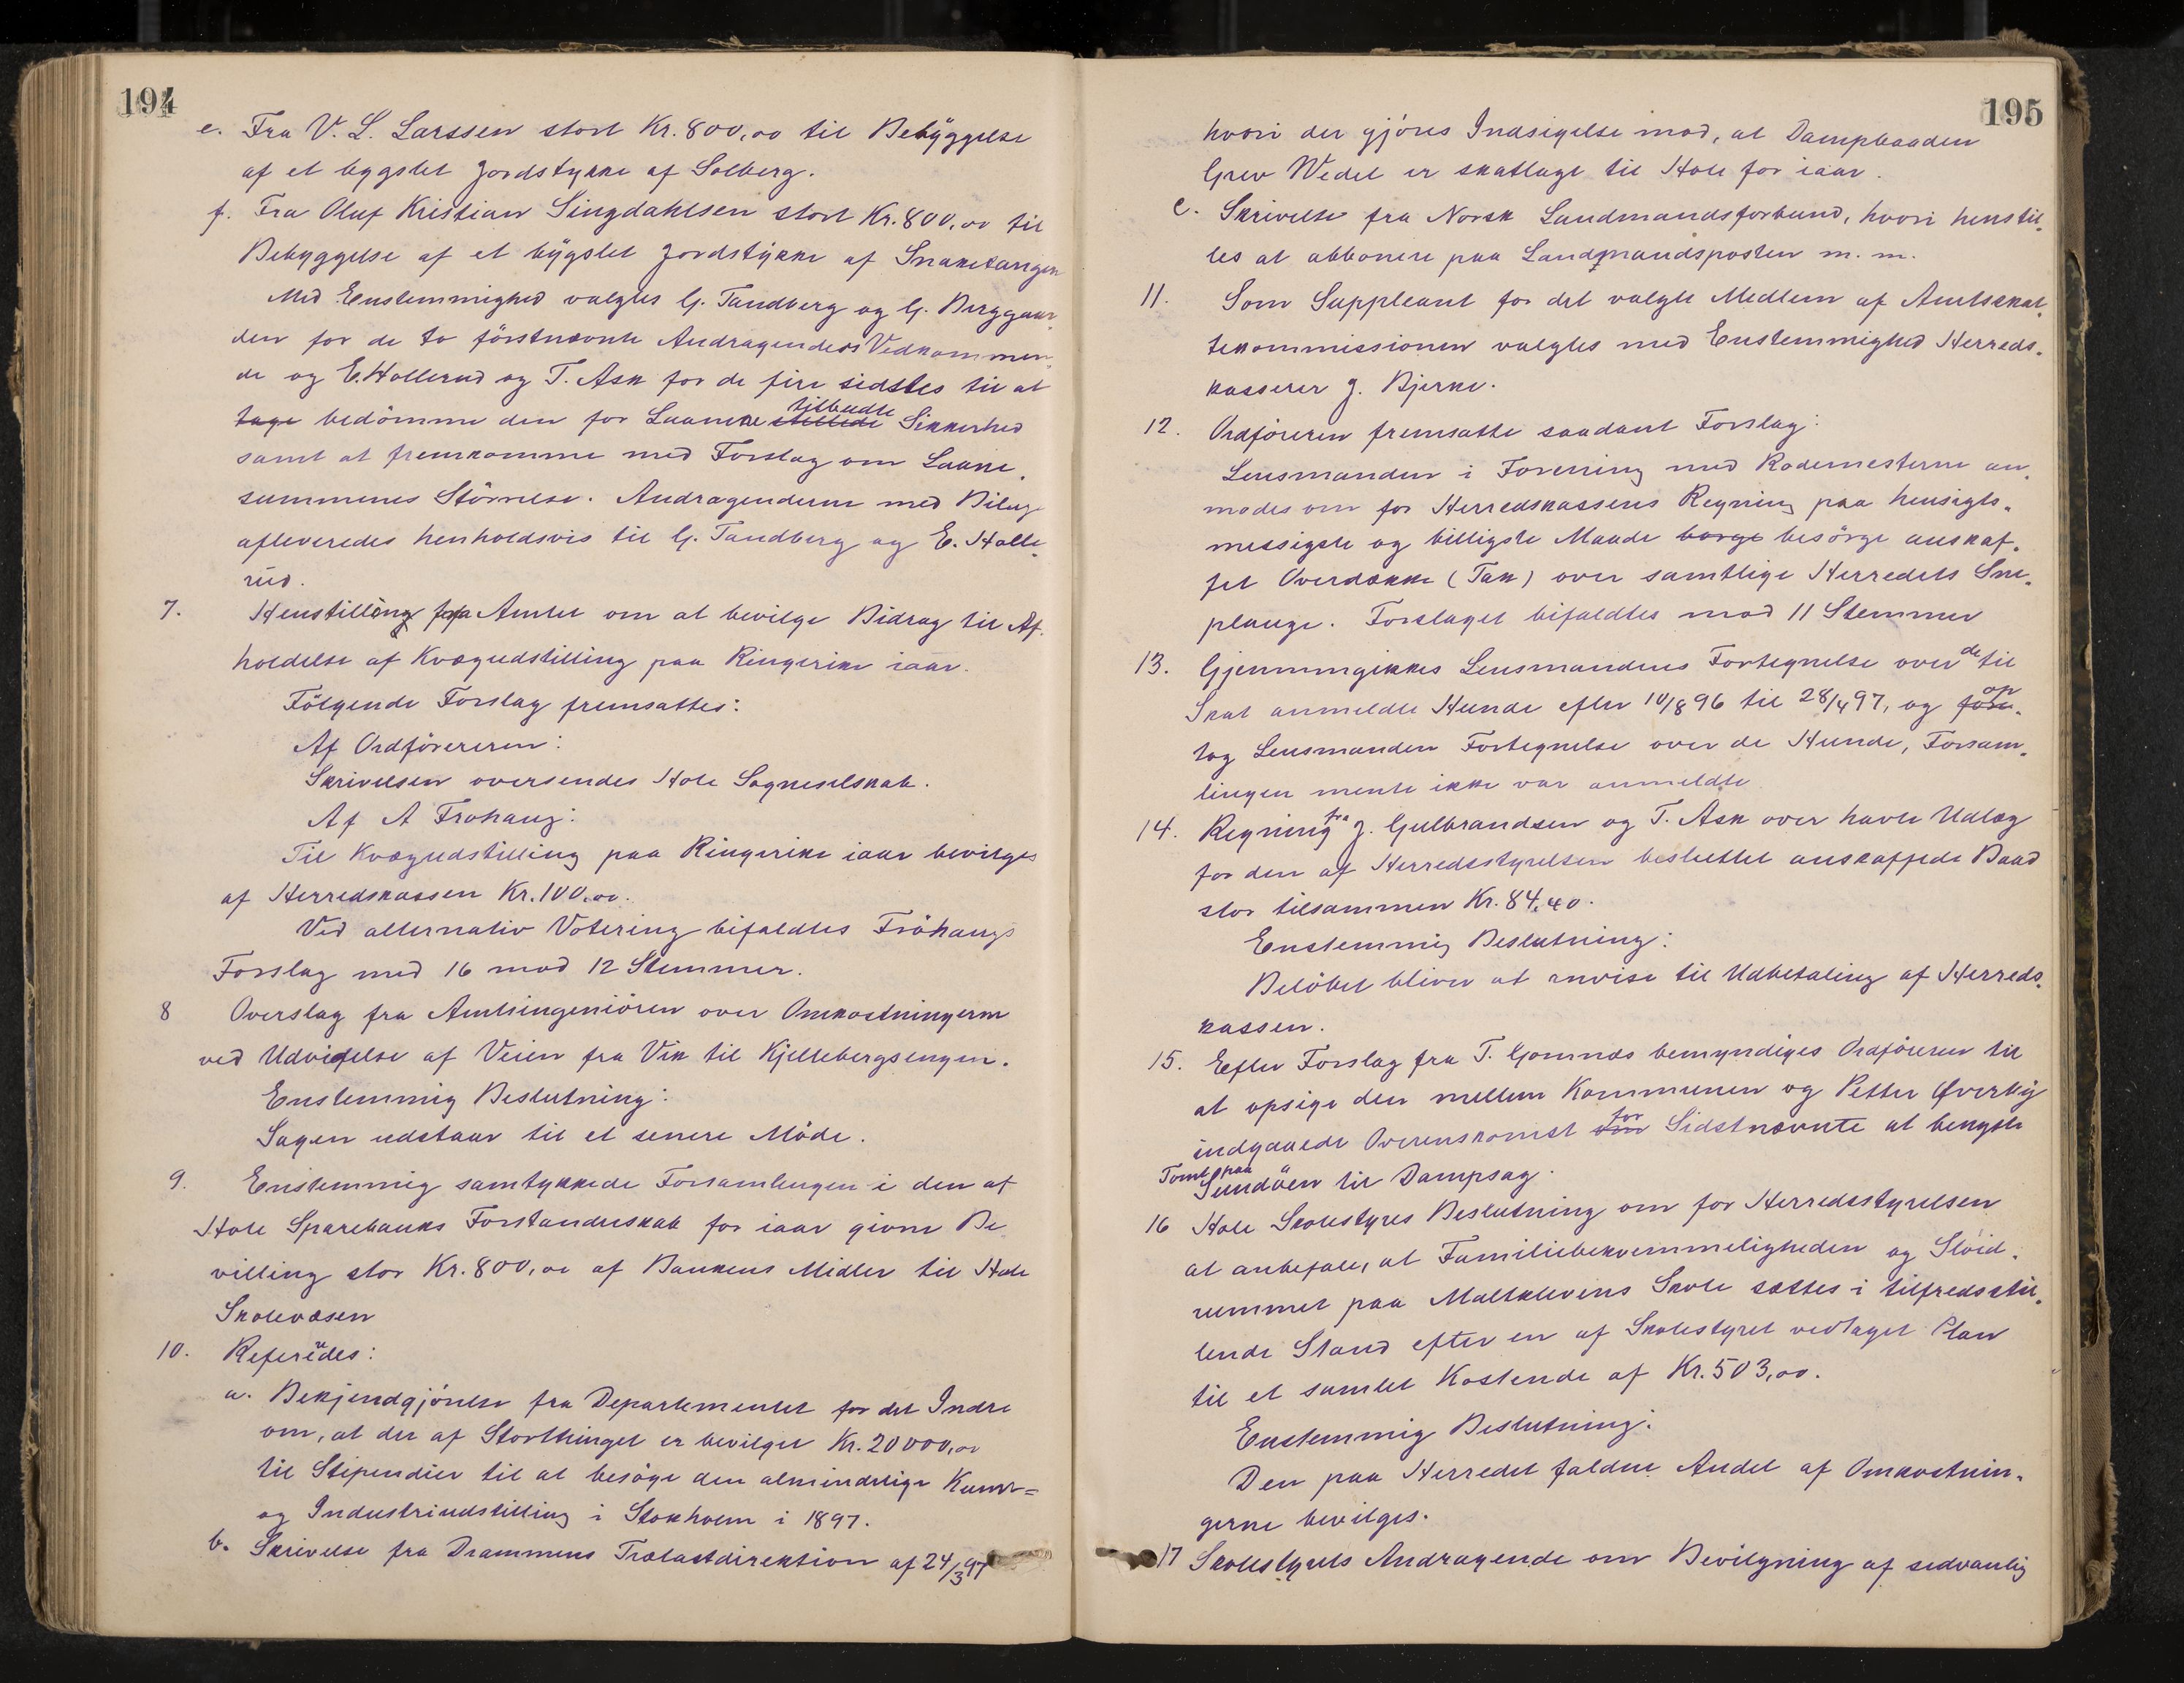 194
e. Fra V. L. Larssen stort Kr. 800,00 til Bebyggelse
af et bygslet Jordstykke af Solberg.
f. Fra Oluf Kristian Singdahlsen stort Kr. 800,00 til
Bebyggelse af et bygslet Jordstykke af Snaketangen
Med Enstemmighed valgtes G. Tandberg og G. Berggaar-
den for de to förstnævnte Andragenders Vedkommen-
de og E. Hollerud og T. Ask for de fire sidstes til at
tage bedömme den for Laanene stillede tilbudte Sikkerhed
samt at fremkomme med Forslag om Laane-
summenes Störrelse. Andragenderne med Bilag
afleveredes henholdsvis til G. Tandberg og E. Holle-
rud.
7. Henstilling fra Amtet om at bevilge Bidrag til Af-
holdelse af Kvægudstilling paa Ringerike iaar.
Fölgende Forslag fremsattes:
Af Ordföreren:
Skrivelsen oversendes Hole Sogneselskab.
Af A Fröhaug:
Til Kvægudstilling paa Ringerike iaar bevilges
af Herredskassen Kr. 100,00.
Ved alternativ Votering bifaldtes Fröhaugs
Forslag med 16 mod 12 Stemmer.
8 Overslag fra Amtsingeniören over Omkostningerne
ved Udvidelse af Veien fra Vik til Kjellebergsengen.
Enstemmig Beslutning:
Sagen udstaar til et senere Möde.
9. Enstemmig samtykkede Forsamlingen i den af
Hole Sparebanks Forstanderskab for iaar givne Be-
villing stor Kr. 800,00 af Bankens Midler til Hole
Skolevæsen
10. Refereredes:
a. Bekjendgjörelse fra Departementet for det Indre
om, at der af Storthinget er bevilget Kr. 20000,00
til Stipendier til at besöge den almindelige Kunst=
og Industriudstilling i Stokholm i 1897.
b. Skrivelse fra Drammens Trælastdirektion af 24/3 97
195
hvori der gjöres Indsigelse mod, at Dampbaaden
Grev Wedel er skatlagt til Hole for iaar.
c. Skrivelse fra Norsk Landmandsforbund, hvori henstil-
les at abbonere paa Landmandsposten m. m.
11. Som Suppleant for det valgte Medlem af Amtsskat-
tekommissionen valgtes med Enstemmighed Herreds-
kasserer J. Bjerke.
12. Ordföreren fremsatte saadant Forslag:
Lensmanden i Forening med Rodemesterne an-
modes om for Herredskassens Regning paa hensigts-
messigste og billigste Maade borge besörge anskaf-
fet Overdække (Tak) over samtlige Herredets Sne-
plauge. Forslaget bifaldtes mod 11 Stemmer
13. Gjennemgikkes Lensmandens Fortegnelse over de til
Skat anmeldte Hunde efter 10/8 96 til 28/4 97, og fore- op-
tog Lensmanden Fortegnelse over de Hunde, Forsam-
lingen mente ikke var anmeldte
14. Regning fra J. Gulbrandsen og T. Ask over havte Udlæg
for den af Herredsstyrelsen besluttet anskaffede Baad
stor tilsammen Kr. 84,40.
Enstemmig Beslutning:
Belöbet bliver at anvise til Udbetaling af Herreds-
kassen.
15. Efter Forslag fra T. Gomnæs bemyndiges Ordföreren til
at opsige den mellem Kommunen og Petter Øverby
indgaaede Overenskomst om for Sidstnævnte at benytte
Tomt paa Sundöen til Dampsag.
16 Hole Skolestyres Beslutning om for Herredsstyrelsen
at anbefale, at Familiebekvemmeligheden og Slöid-
rummet paa Maltklevens Skole sættes i tilfredsstil-
lende Stand efter en af Skolestyret vedtaget Plan
til et samlet Kostende af Kr. 503,00.
Enstemmig Beslutning:
Den paa Herredet faldne Andel af Omkostnin-
gerne bevilges.
17 Skolestyrets Andragende om Bevilgning af sedvanlig